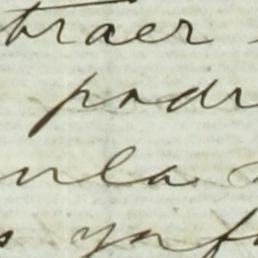 traer
podr
ula
s ynf